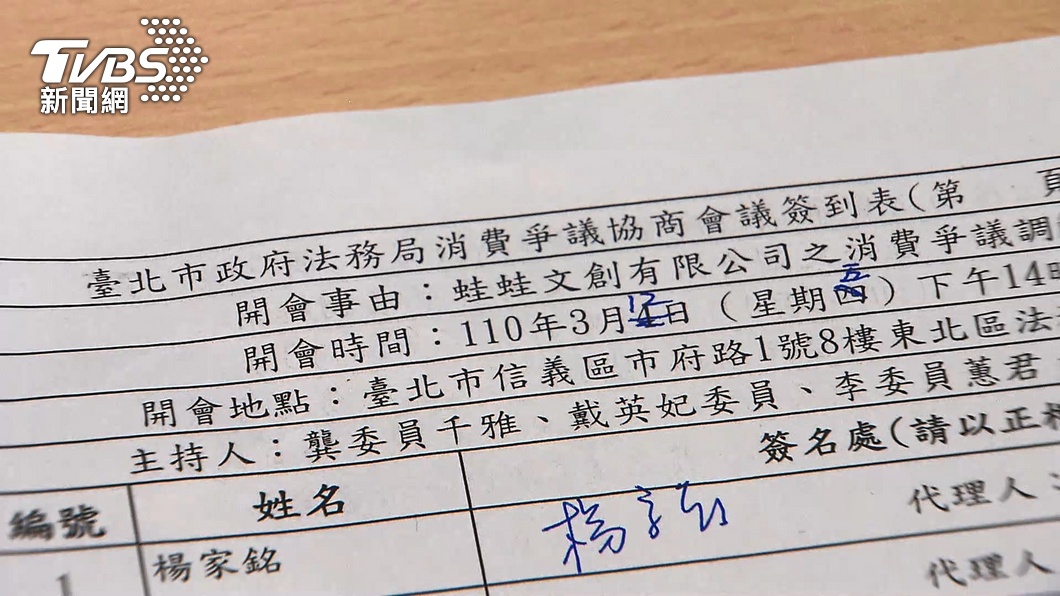 TVBS
新聞網
臺北市政府法務局消費爭議協商會議簽到表(第 頁
開會事由：蛙蛙文創有限公司之消費爭議調
開會時間：110年3月12日（星期五）下午14時
開會地點：臺北市信義區市府路1號8樓東北區法
主持人：龔委員千雅、戴英妃委員、李委員蕙君
簽名處(請以正楷
編號 姓名
代理人：
1 楊家銘 楊
代理人